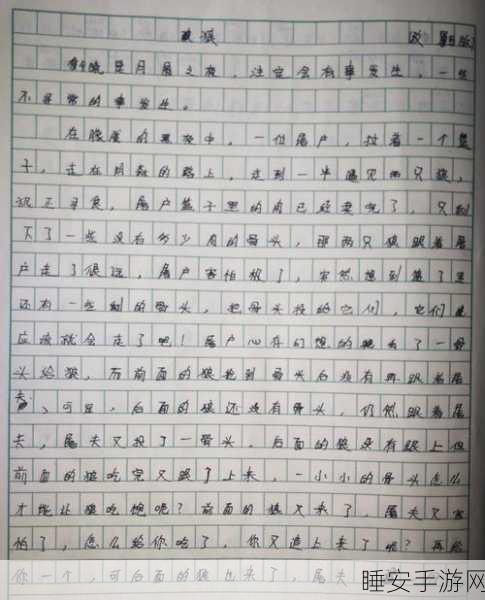 狼 改编版
今晚是月黑之夜，注定会有事发生，一些
不寻常的事发生。
在朦胧的黑夜中，一位屠户，拉着一个篮
子，走在阴森的路上，走到一半遇见两只狼，
屠户篮子里的肉已经卖完了，只剩
下了一些没有多少肉的骨头，那两只狼跟着屠
户走了很远，屠户害怕极了，突然想到篮子里
还有一些剩的骨头，把骨头投给它们，它们
应该就会走了吧！屠户心存幻想的抛出了一骨
头给狼，而前面的狼抢到骨头后没有再跟着屠
夫，可是，后面的狼还没有骨头，仍然跟着屠
夫，屠夫又投了一骨头。后面的狼没有跟上但
前面的狼吃完又跟了上来，一小小的骨头怎么
才能让狼吃饱呢？前面的狼又来了，屠夫又害
怕了，怎么给你吃了，你又追上来了呢？再给
你一个，可后面的狼也来了，屠夫
睡安手游网